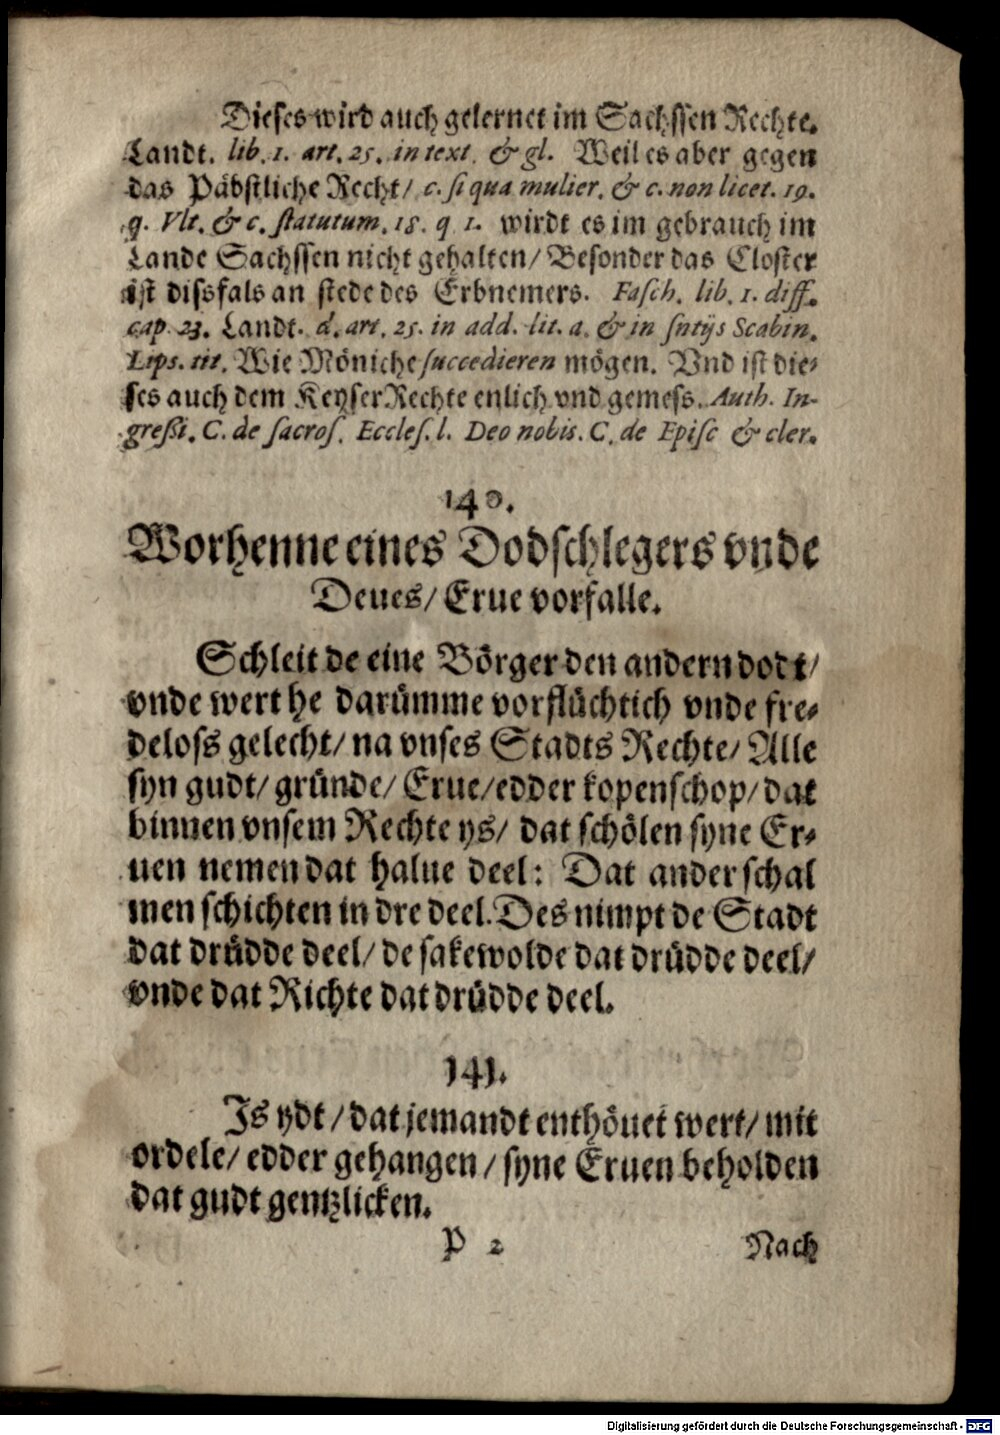 Dieses wird auch gelernet im Sachssen Rechte.
Landt. lib. 1. art. 25. in text. & gl. Weil es aber gegen
das Päbstliche Recht/ c. si qua mulier. & c. non licet. 19.
q. Vlt. & c. statutum. 18. q 1. wirdt es im gebrauch im
Lande Sachssen nicht gehalten/ Besonder das Closter
ist dissfals an stede des Erbnemers. Fasch. lib. 1. diff.
cap. 23. Landt. d. art. 25. in add. lit. a. & in sntijs Scabin.
Lips. tit. Wie Möniche succedieren mögen. Vnd ist die⸗
ses auch dem Keyser Rechte enlich vnd gemess. Auth. In-
gressi. C. de sacros. Eccles. l. Deo nobis. C. de Episc & cler.
140.
Worhenne eines Dodschlegers vnde
Deues/ Erue vorfalle.
Schleit de eine Börger den andern dodt/
vnde wert he darümme vorflüchtich vnde fre⸗
deloss gelecht/ na vnses Stadts Rechte/ Alle
syn gudt/ gründe/ Erue/ edder kopenschop/ dat
binnen vnsem Rechte ys/ dat schölen syne Er⸗
uen nemen dat halue deel: Dat ander schal
men schichten in dre deel. Des nimpt de Stadt
dat drüdde deel/ de sakewolde dat drüdde deel/
vnde dat Richte dat drüdde deel.
141.
Is ydt/ dat jemandt enthöuet wert/ mit
ordele/ edder gehangen/ syne Eruen beholden
dat gudt gentzlicken.
P 2 Nach
Digitalisierung gefördert durch die Deutsche Forschungsgemeinschaft - DFG